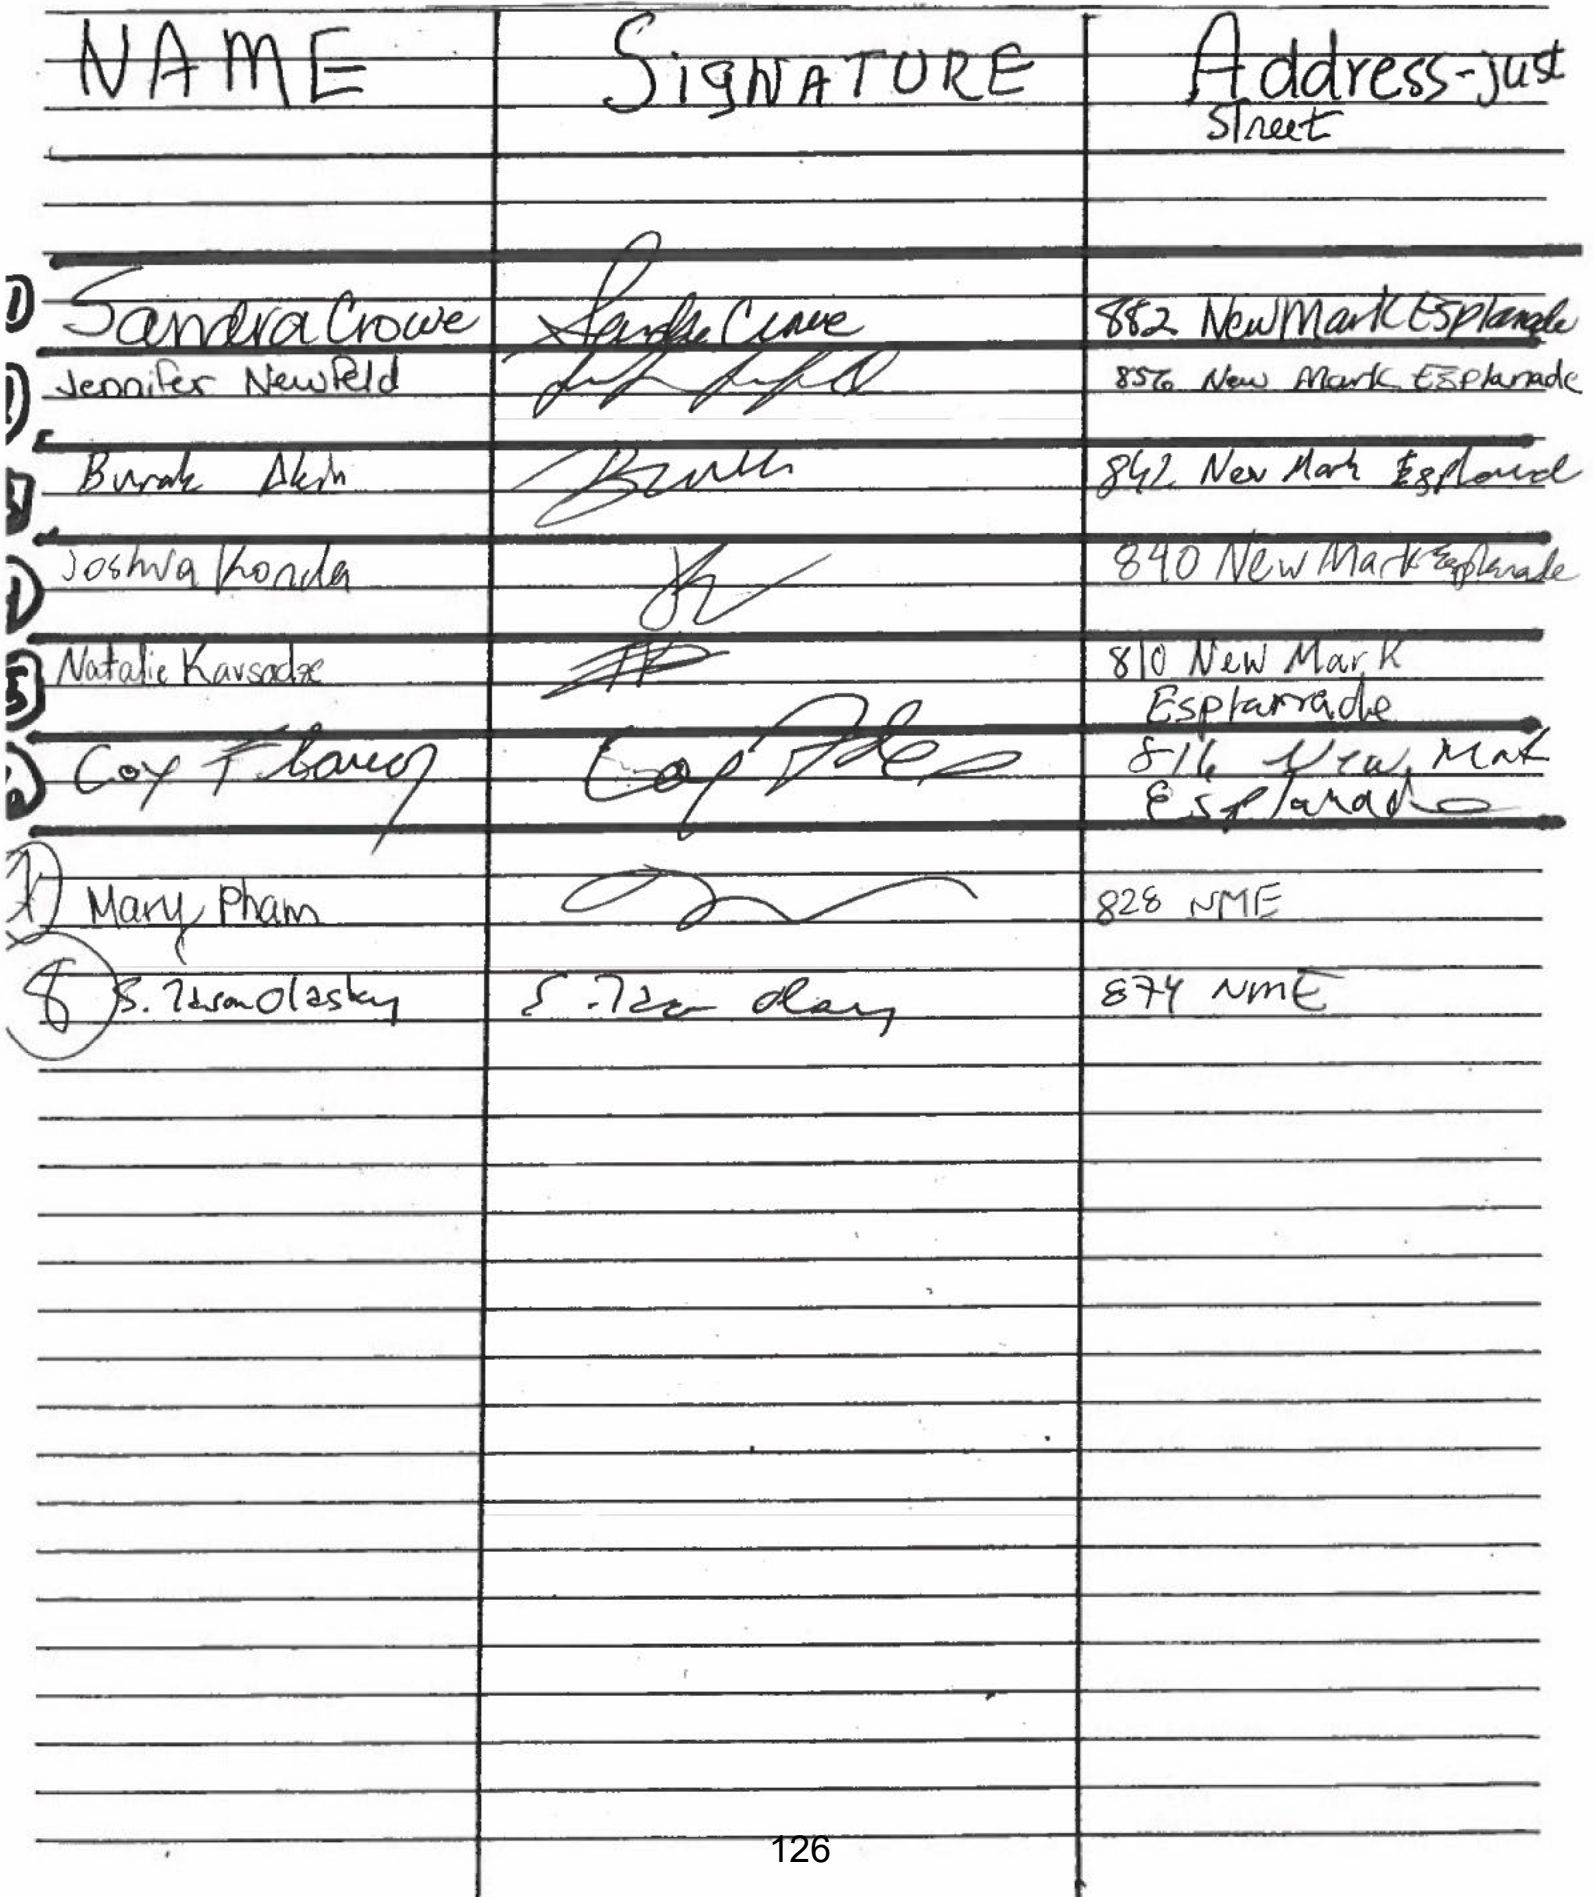 NAME SIGNATURE Address-just
Street
1) Sandra Crowe Sandra Crowe 882 New Mark Esplanade
Jennifer Newfeld 856 New Mark Esplanade
Burak Akin Burak 842 New Mark Esplanad
Joshua Konda 840 New Mark Esplanade
5) Natalie Kavsadze 810 New Mark
Esplanade
Coy 816 New Mark
Esplanade
Mary Pham 828 NME
8 S. Tason Olasky 874 NME
126